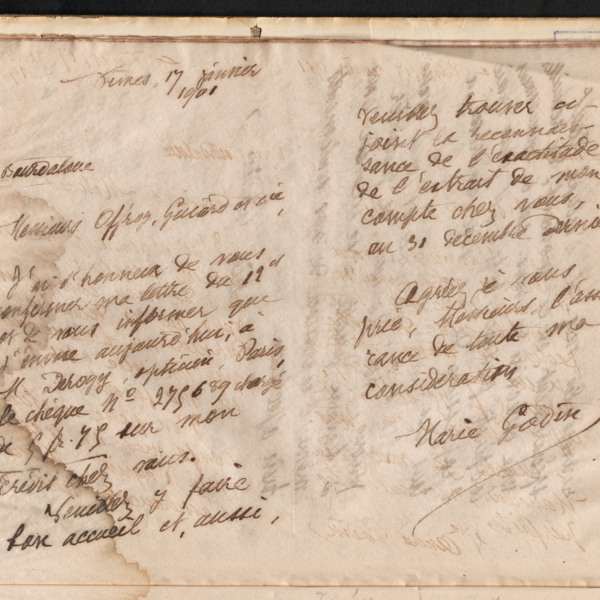 Nimes, 17 février
1901
Bourdaloue
Messieurs Offroy, Guiard et Cie,
J'ai l'honneur de vous
confirmer ma lettre du 12 ct
et de vous informer que
j'envoie aujourd'hui, à
M. Derogy, opticien, Paris,
le chèque No 275689 chargé
de 9 fr. 75 sur mon
crédit chez vous.
Veuillez y faire
bon accueil et, aussi,
veuillez trouver ad-
joint la reconnais-
sance de l'exactitude
de l'extrait de mon
compte chez vous,
au 31 décembre dernier
Agréez je vous
prie, Messieurs, l'assu-
rance de toute ma
considération
Marie Godin